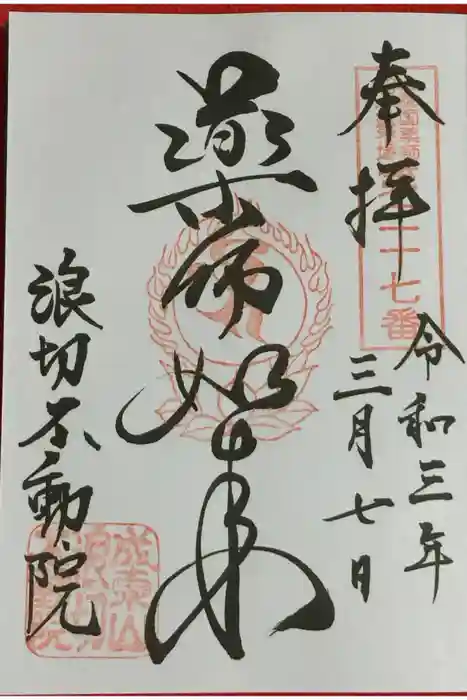 奉拝
令和三年
三月七日
薬師如来
浪切不動院
二十七番
成東山